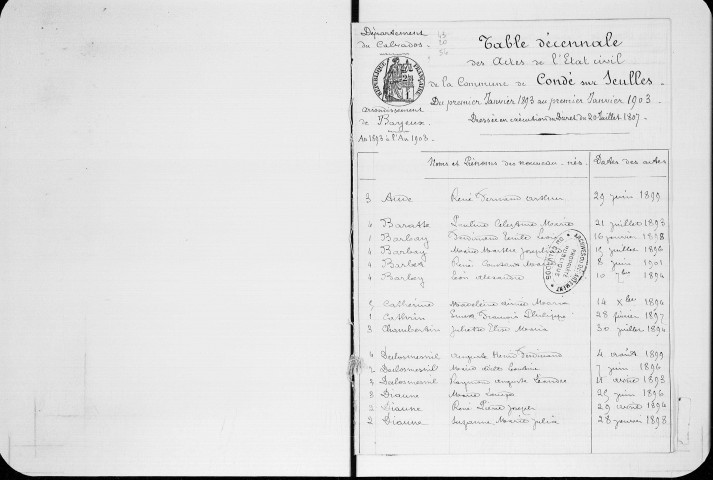 Département
du Calvados.
45
20
56
RÉPUBLIQUE FRANÇAISE
Arrondissement
de Bayeux.
An 1893 à l'An 1903.
Table décennale
des Actes de l'Etat civil
de la Commune de Condé sur Seulles.
Du premier Janvier 1893 au premier Janvier 1903.
Dressée en exécution du Décret du 20 Juillet 1807.
Noms et Prénoms des nouveau-nés. Dates des actes
3 René Fernand Arthur 29 juin 1899
4 Baratte Pauline Célestine Marie 21 juillet 1893
1 Barbay Ferdinand Emile 16 janvier 1898
4 Barbay Marie Marthe Joseph juillet 1896
4 René Marie 8 juin 1901
4 Barbey Léon Alexandre 10 7bre 1894
5 Catherine Madeleine Aimée Maria 14 Xbre 1894
1 Cathrin Ernest François Philippe 28 février 1897
3 Chambertin Juliette Maria 30 juillet 1894
4 Delosmesnil Auguste Henri Ferdinand 4 août 1899
2 Delosmesnil Marie 7 juin 1896
3 Delosmesnil Auguste Léandre 11 avril 1893
3 Dianne Marie 25 juin 1896
2 Dianne René Pierre Joseph 29 avril 1894
2 Dianne Suzanne Marie Julia 28 janvier 1898
ARCHIVES DU CALVADOS